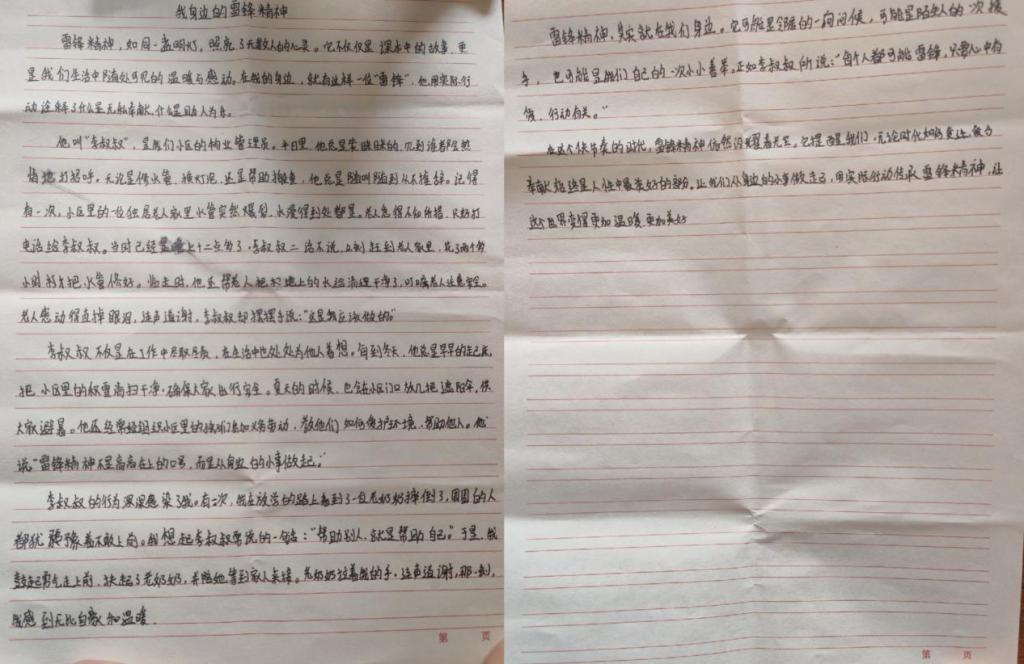 我身边的雷锋精神
雷锋精神,如同一盏明灯,照亮了无数人的心灵。它不仅仅是课本中的故事,更
是我们生活中随处可见的温暖与感动。在我的身边,就有这样一位“雷锋”,他用实际行
动诠释了什么是无私奉献,什么是助人为乐。
他叫“李叔叔”,是我们小区的物业管理员。平日里,他总是笑眯眯的,见到谁都
地打招呼。无论是修水管、换灯泡,还是帮助搬,他总是随叫随到从不推辞。记得
有一次,小区里的一位独居老人家里水管突然爆裂,水漫得到处都是。老人急得不知所措,只好打
电话给李叔叔。当时已经晚上十二点多了,李叔叔二话不说,立刻赶到老人家里,花了两个多
小时才把水管修好。临走时,他还帮老人把地上的水清理干净了,叮嘱老人注意安全。
老人感动得直掉眼泪,连声道谢。李叔叔却摆摆手说:“这是我应该做的。”
李叔叔不仅是在工作中尽职尽责,在生活中也处处为他人着想。每到冬天,他总是早早的起床,
把小区里的积雪清扫干净,确保大家出行安全。夏天的时候,他会在小区门口放几把遮阳伞,供
大家避暑。他还经常组织小区里的孩子们参加义务劳动,教他们如何爱护环境,帮助他人。他
说“雷锋精神不是高高在上的口号,而是从身边的小事做起。”
李叔叔的行为深深感染了我。有一次,我在放学的路上看到了一位老奶奶摔倒了,周围的人
都犹豫着不敢上前。我想起李叔叔常说的一句话:“帮助别人,就是帮助自己。”于是,我
鼓起勇气走上前,扶起了老奶奶,并陪她等到家人来接。老奶奶拉着我的手,连声道谢,那一刻,
我感到无比自豪和温暖.
第 页
雷锋精神,其实就在我们身边。它可能是邻居的一句问候,可能是陌生人的一次援
手,也可能是我们自己的一次小小善举。正如李叔叔所说:“每个人都可能雷锋,只要心中有
爱、行动有光。”
在这个快节奏的时代,雷锋精神仍然闪耀着光芒。它提醒我们,无论时代如何变迁,
奉献始终是人性中最美好的部分。让我们从身边的小事做起,用实际行动传承雷锋精神,让
这个世界变得更加温暖、更加美好
第 页